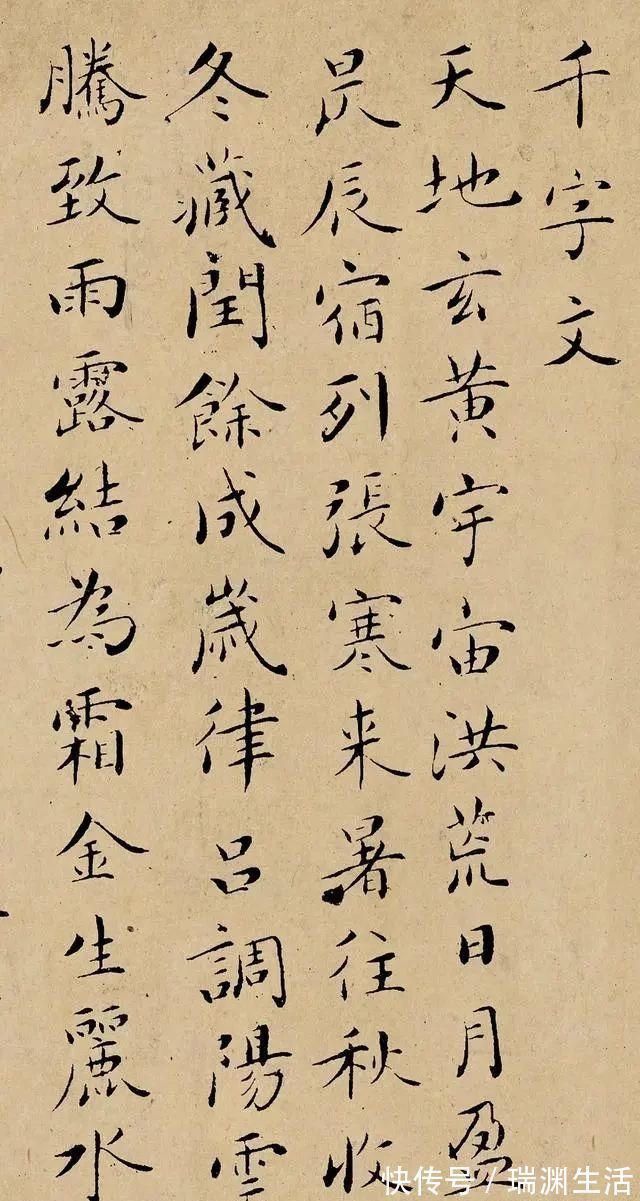 千字文
天地玄黄宇宙洪荒日月盈
昃辰宿列張寒来暑往秋收
冬藏閏餘成歲律呂調陽雲
騰致雨露結為霜金生麗水
快传号/瑞渊生活